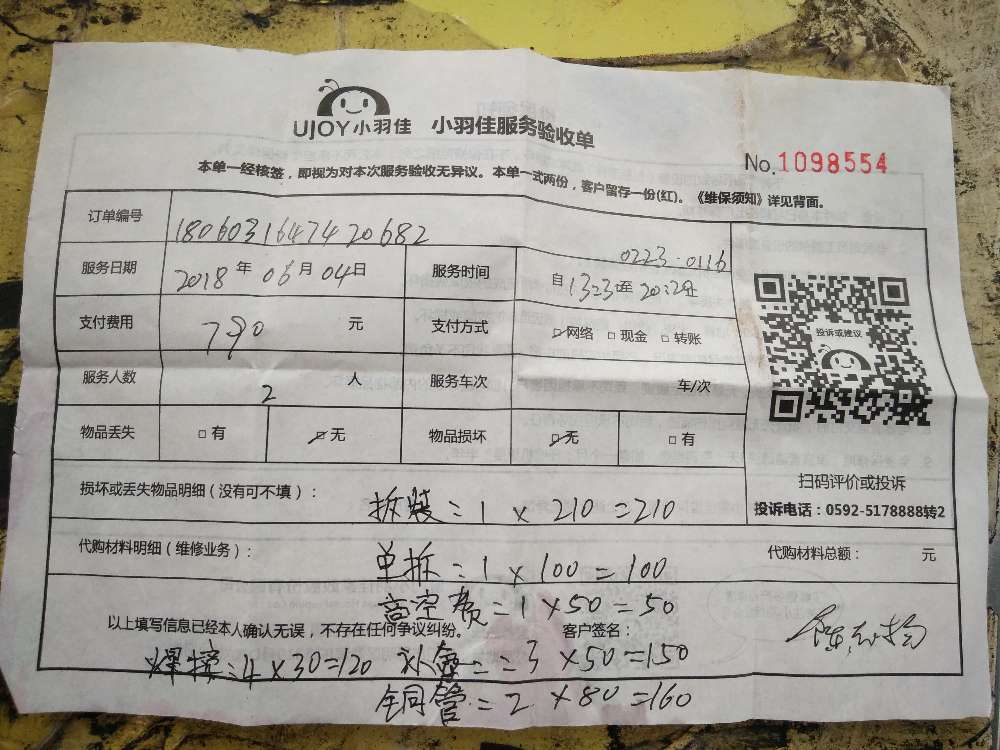 UJOY小羽佳 小羽佳服务验收单
No.1098554
本单一经核签，即视为对本次服务验收无异议。本单一式两份，客户留存一份(红)。《维保须知》详见背面。
订单编号 18060316474720682
0223-0116
服务日期 2018年06月04日 服务时间 自1323至20:28止
支付费用 790 元 支付方式 网络 现金 转账
投诉或建议
服务人数 2 人 服务车次 车/次
物品丢失 有 无 物品损坏 无 有
扫码评价或投诉
损坏或丢失物品明细（没有可不填）：
拆装：1×210=210
投诉电话：0592-5178888转2
代购材料明细（维修业务）： 单拆：1×100=100 代购材料总额： 元
高空费=1×50=50
以上填写信息已经本人确认无误，不存在任何争议纠纷。 客户签名：
焊接：4×30=120 补氟：=3×50=150
铜管=2×80=160